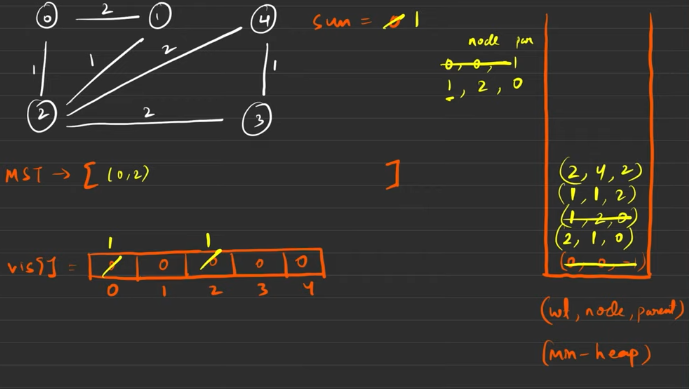 0 2 1 4
1 1 2 1
2 2 3
sum = 0 1
node par
0, 0, -1
1, 2, 0
MST → [ (0,2) ]
1 1
vis[] = 0 0 0 0 0
0 1 2 3 4
(2, 4, 2)
(1, 1, 2)
(1, 2, 0)
(2, 1, 0)
(0, 0, -1)
(wt, node, parent)
(min-heap)